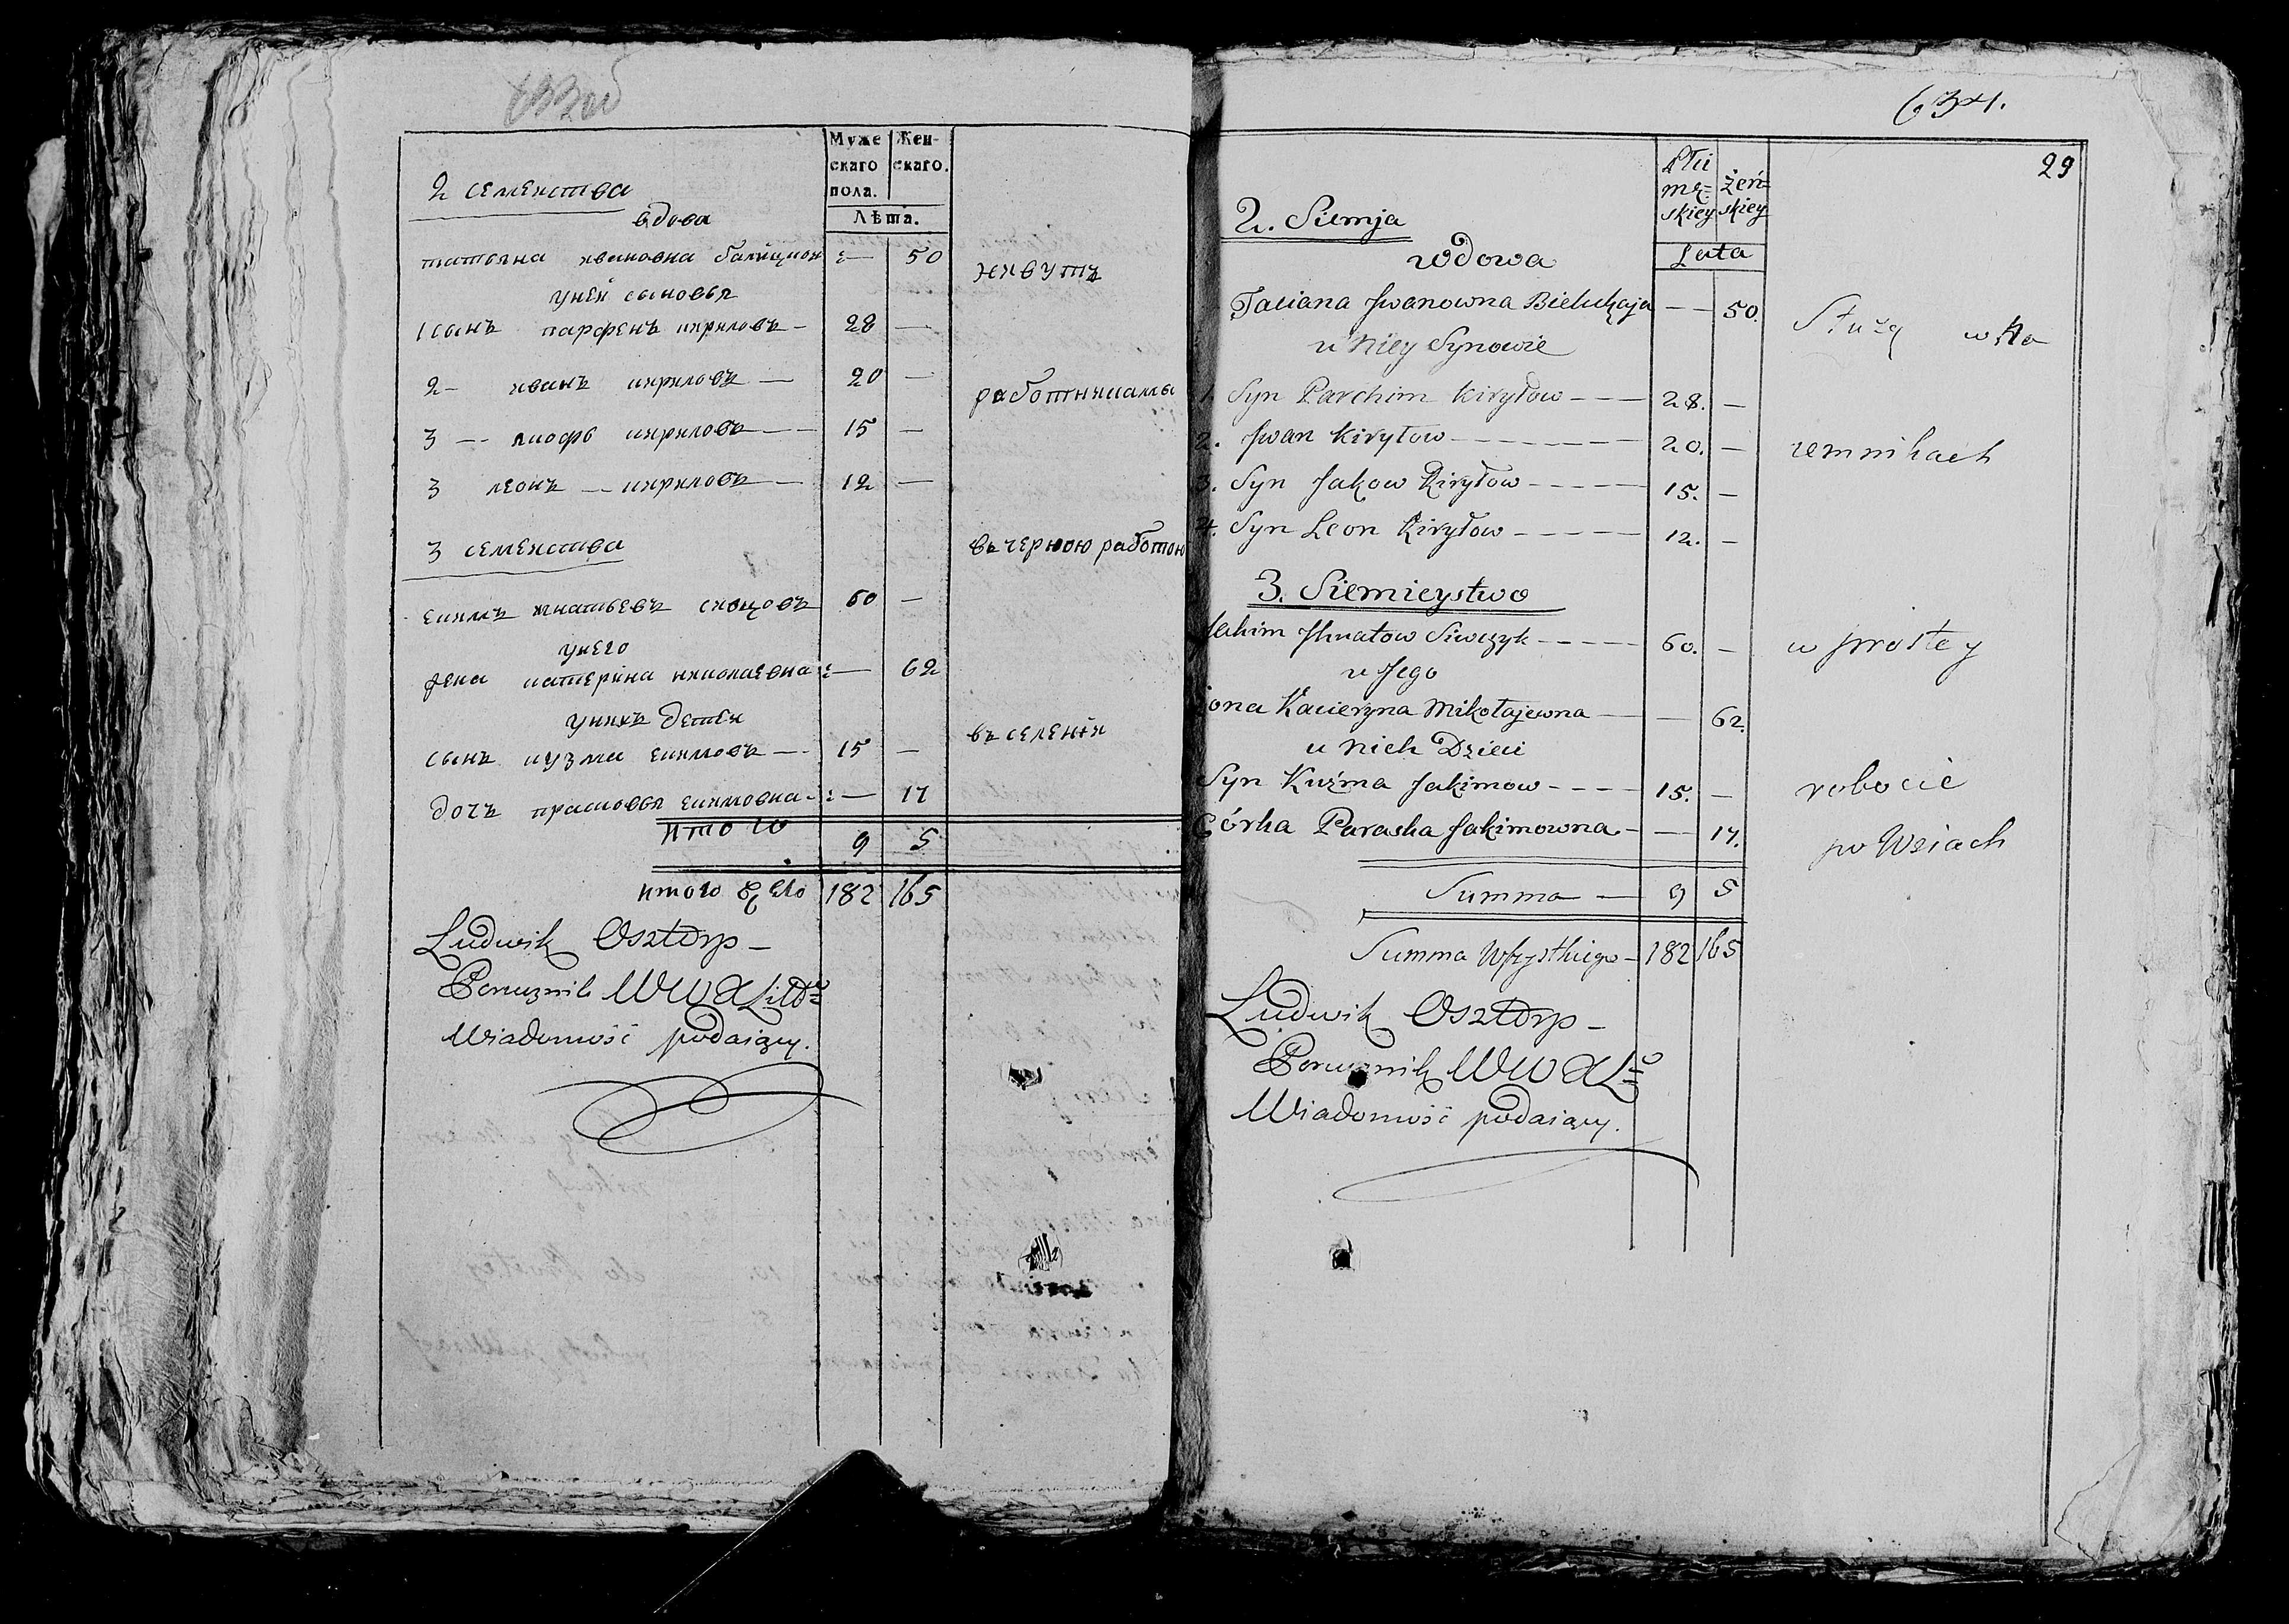 633 об
Муже
скаго
пола.
Жен-
скаго.
Лѣта.
2 семенства
вдова
татьяна ивановна 50 живутъ
уней сыновья
1 сынъ парфенъ кириловъ — 28 —
2 — иванъ кириловъ — 20 — работниками
3 — якофь кириловъ — 15 —
3 леонъ — кириловъ — 12 —
3 семенства вь чернюю работою
екимъ игнатьевъ 60 —
унего
жена катерина николаевна — 62
унихъ дети
сынъ кузма екимовъ — 15 — въ селенїи
дочъ прасковья екимовна — 17
итого 9 5
итого 182 165
Ludwik Osztorp —
Porucznik WWXLitt
Wiadomość podaiący.
634.
29
Płci
mę=
skiey
żeń=
skiey
Lata
2. Siemja
wdowa
Taciana Jwanowna Bieluckaja — 50. Służą w Rze
u Niey Synowie
1. Syn Parchim Kiryłow — 28. —
2. Jwan Kiryłow — 20. — remnikach
3. Syn Jakow Kiryłow — 15. —
4. Syn Leon Kiryłow — 12. —
3. Siemieystwo
Jakim Jhnatow Siwczyk — 60. — w prostey
u Jego
żona Kacieryna Mikołajewna — 62.
u Nich Dzieci
Syn Kuźma Jakimow — 15. — robocie
Córka Paraska Jakimowna — 17. po Wsiach
Summa — 9 5
Summa Wszystkiego — 182 165
Ludwik Osztorp —
Porucznik WWXL
Wiadomość podaiący.